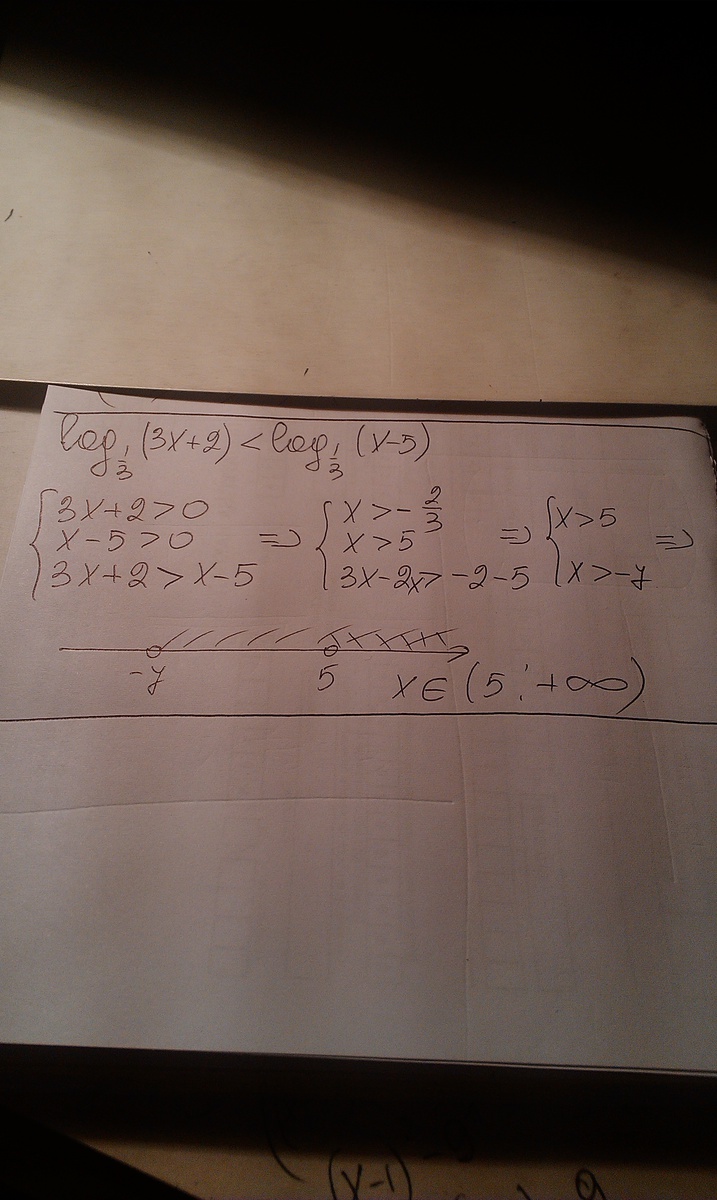 log 1/3 (3x+2) < log 1/3 (x-5)
{3x+2>0 => {x>-2/3 => {x>5 =>
x-5>0 x>5
3x+2>x-5 3x-2x>-2-5 x>-7
-7 5 x∈(5;+∞)
(x-1)